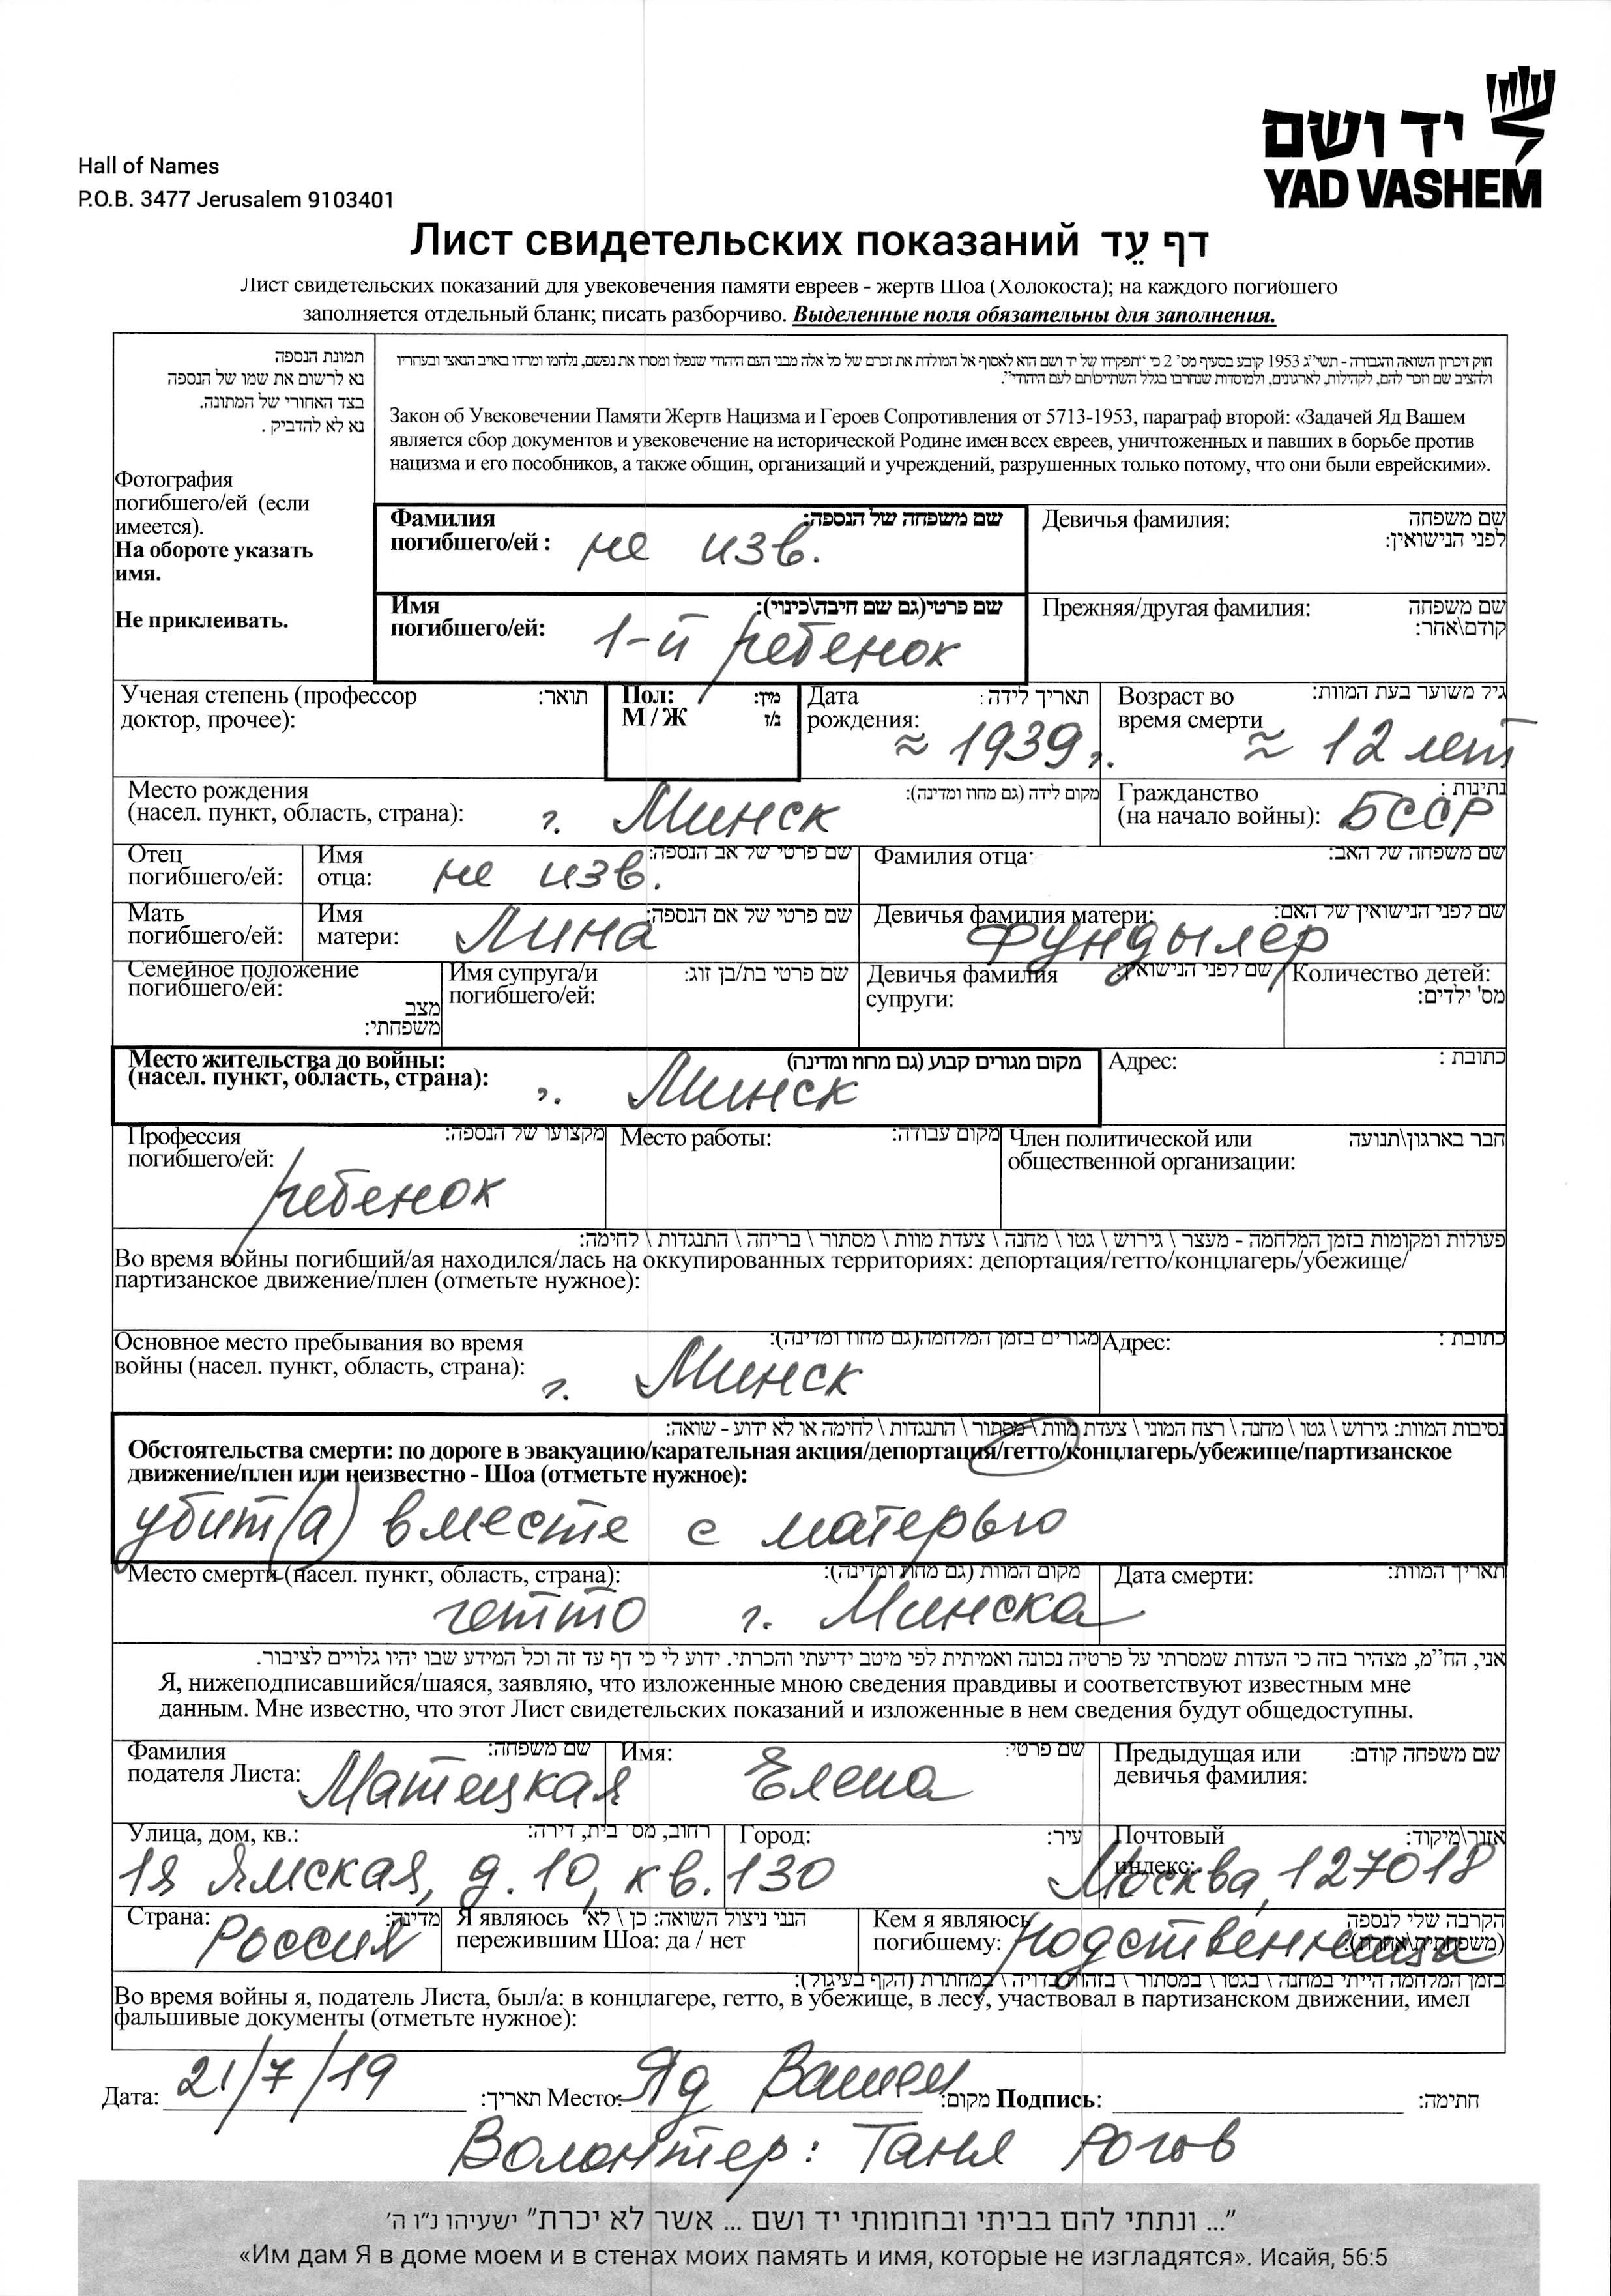 יד ושם
YAD VASHEM
Hall of Names
P.O.B. 3477 Jerusalem 9103401
Лист свидетельских показаний דף עֵד
Лист свидетельских показаний для увековечения памяти евреев - жертв Шоа (Холокоста); на каждого погибшего
заполняется отдельный бланк; писать разборчиво. Выделенные поля обязательны для заполнения.
תמונת הנספה
נא לרשום את שמו של הנספה
בצד האחורי של המתונה.
נא לא להדביק .
Фотография
погибшего/ей (если
имеется).
На обороте указать
имя.
Не приклеивать.
חוק זיכרון השואה והגבורה - תשי״ג 1953 קובע בסעיף מס' 2 כי "תפקידו של יד ושם הוא לאסוף אל המולדת את זכרם של כל אלה מבני העם היהודי שנפלו ומסרו את נפשם, נלחמו ומרדו באויב הנאצי ובעוזריו
ולהציב שם וזכר להם, לקהילות, לארגונים, ולמוסדות שנחרבו בגלל השתייכותם לעם היהודי".
Закон об Увековечении Памяти Жертв Нацизма и Героев Сопротивления от 5713-1953, параграф второй: «Задачей Яд Вашем
является сбор документов и увековечение на исторической Родине имен всех евреев, уничтоженных и павших в борьбе против
нацизма и его пособников, а также общин, организаций и учреждений, разрушенных только потому, что они были еврейскими».
Фамилия שם משפחה של הנספה:
погибшего/ей : не изв.
Девичья фамилия: שם משפחה
לפני הנישואין:
Имя שם פרטי(גם שם חיבה\כינוי):
погибшего/ей: 1-й ребенок
Прежняя/другая фамилия: שם משפחה
קודם\אחר:
Ученая степень (профессор תואר:
доктор, прочее):
Пол: מין:
М / Ж ז/נ
Дата תאריך לידה :
рождения: ≈ 1939 г.
Возраст во גיל משוער בעת המוות:
время смерти ≈ 12 лет
Место рождения מקום לידה (גם מחוז ומדינה):
(насел. пункт, область, страна): г. Минск
Гражданство נתינות :
(на начало войны): БССР
Отец
погибшего/ей:
Имя שם פרטי של אב הנספה:
отца: не изв.
Фамилия отца: שם משפחה של האב:
Мать
погибшего/ей:
Имя שם פרטי של אם הנספה:
матери: Лина
Девичья фамилия матери: שם לפני הנישואין של האם:
Фундылер
Семейное положение
погибшего/ей:
מצב
משפחתי:
Имя супруга/и שם פרטי בת/בן זוג:
погибшего/ей:
Девичья фамилия שם לפני הנישואין:
супруги:
Количество детей:
מס' ילדים:
Место жительства до войны: מקום מגורים קבוע (גם מחוז ומדינה)
(насел. пункт, область, страна): г. Минск
Адрес: כתובת :
Профессия מקצועו של הנספה:
погибшего/ей:
ребенок
Место работы: מקום עבודה:
Член политической или חבר בארגון\תנועה
общественной организации:
פעולות ומקומות בזמן המלחמה - מעצר \ גירוש \ גטו \ מחנה \ צעדת מוות \ מסתור \ בריחה \ התנגדות \ לחימה:
Во время войны погибший/ая находился/лась на оккупированных территориях: депортация/гетто/концлагерь/убежище/
партизанское движение/плен (отметьте нужное):
Основное место пребывания во время מגורים בזמן המלחמה(גם מחוז ומדינה):
войны (насел. пункт, область, страна): г. Минск
Адрес: כתובת :
נסיבות המוות: גירוש \ גטו \ מחנה \ רצח המוני \ צעדת מוות \ מסתור \ התנגדות \ לחימה או לא ידוע - שואה:
Обстоятельства смерти: по дороге в эвакуацию/карательная акция/депортация/гетто/концлагерь/убежище/партизанское
движение/плен или неизвестно - Шоа (отметьте нужное):
убит(а) вместе с матерью
Место смерти (насел. пункт, область, страна): מקום המוות (גם מחוז ומדינה):
гетто г. Минска
Дата смерти: תאריך המוות:
אני, הח״מ, מצהיר בזה כי העדות שמסרתי על פרטיה נכונה ואמיתית לפי מיטב ידיעתי והכרתי. ידוע לי כי דף עד זה וכל המידע שבו יהיו גלויים לציבור.
Я, нижеподписавшийся/шаяся, заявляю, что изложенные мною сведения правдивы и соответствуют известным мне
данным. Мне известно, что этот Лист свидетельских показаний и изложенные в нем сведения будут общедоступны.
Фамилия שם משפחה:
подателя Листа: Матецкая
Имя: שם פרטי:
Елена
Предыдущая или שם משפחה קודם:
девичья фамилия:
Улица, дом, кв.: רחוב, מס' בית, דירה:
1я Ямская, д. 10, кв. 130
Город: עיר:
Почтовый אזור\מיקוד:
индекс:
Москва, 127018
Страна: מדינה:
Россия
Я являюсь הנני ניצול השואה: כן \ לא
пережившим Шоа: да / нет
Кем я являюсь הקרבה שלי לנספה
погибшему: (משפחתית\אחרת):
родственница
בזמן המלחמה הייתי במחנה \ בגטו \ במסתור \ בזהות בדויה \ במחתרת (הקף בעיגול):
Во время войны я, податель Листа, был/а: в концлагере, гетто, в убежище, в лесу, участвовал в партизанском движении, имел
фальшивые документы (отметьте нужное):
Дата: 21/7/19 תאריך: Место: Яд Вашем מקום: Подпись: חתימה:
Волонтер: Таня Рогов
"... ונתתי להם בביתי ובחומותי יד ושם ... אשר לא יכרת" ישעיהו נ״ו ה'
«Им дам Я в доме моем и в стенах моих память и имя, которые не изгладятся». Исайя, 56:5